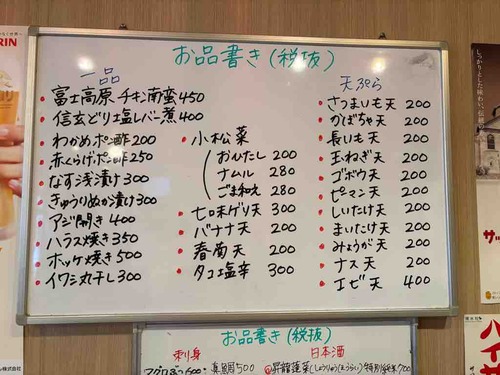 お品書き(税抜)
一品
富士高原チキン南蛮 450
信玄どり塩レバー煮 400
わかめポン酢 200
赤くらげポン酢 250
なす浅漬け 300
きゅうりぬか漬け 300
アジ開き 400
ハラス焼き 350
ホッケ焼き 500
イワシ丸干し 300
小松菜
おひたし 200
ナムル 280
ごま和え 280
七味ゲソ天 300
バナナ天 200
春菊天 200
タコ塩辛 300
天ぷら
さつまいも天 200
かぼちゃ天 200
長いも天 200
玉ねぎ天 200
ゴボウ天 200
ピーマン天 200
しいたけ天 200
まいたけ天 200
みょうが天 200
ナス天 200
エビ天 400
お品書き(税抜)
刺身
真鯛 500
日本酒
昇龍蓬莱(しょうりゅうほうらい)特別純米 700
RIN